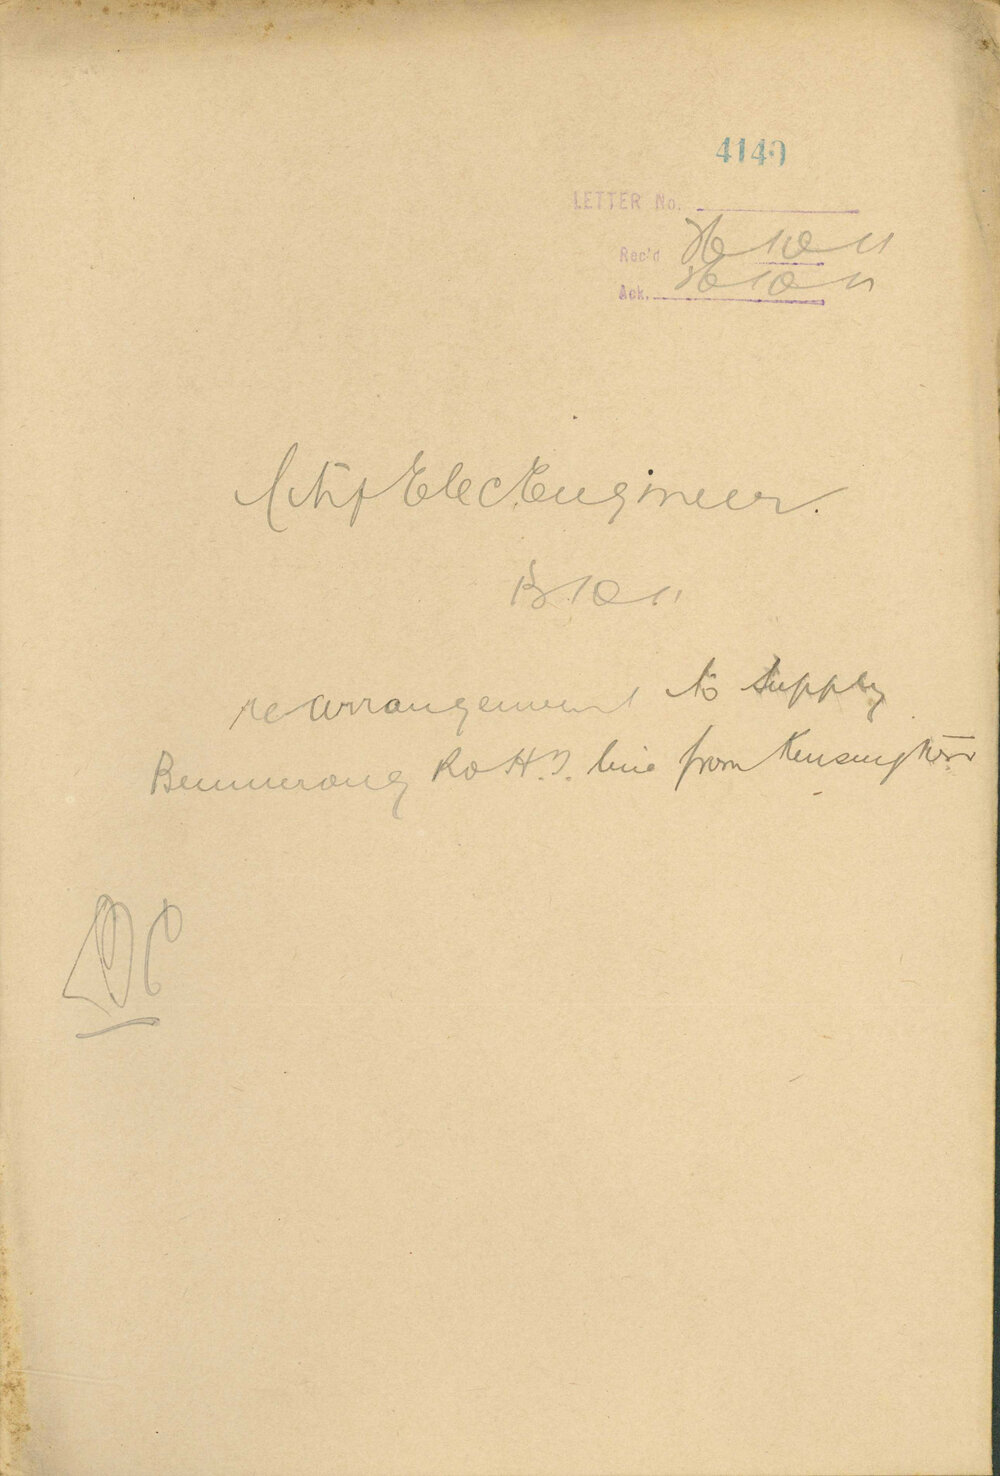 4140
LETTER No.
Rec'd 26 10 11
Ack. 26 10 11
City Elec Engineer.
10 11
re arrangement to supply
Bunnerong Rd H.T. line from Kensington